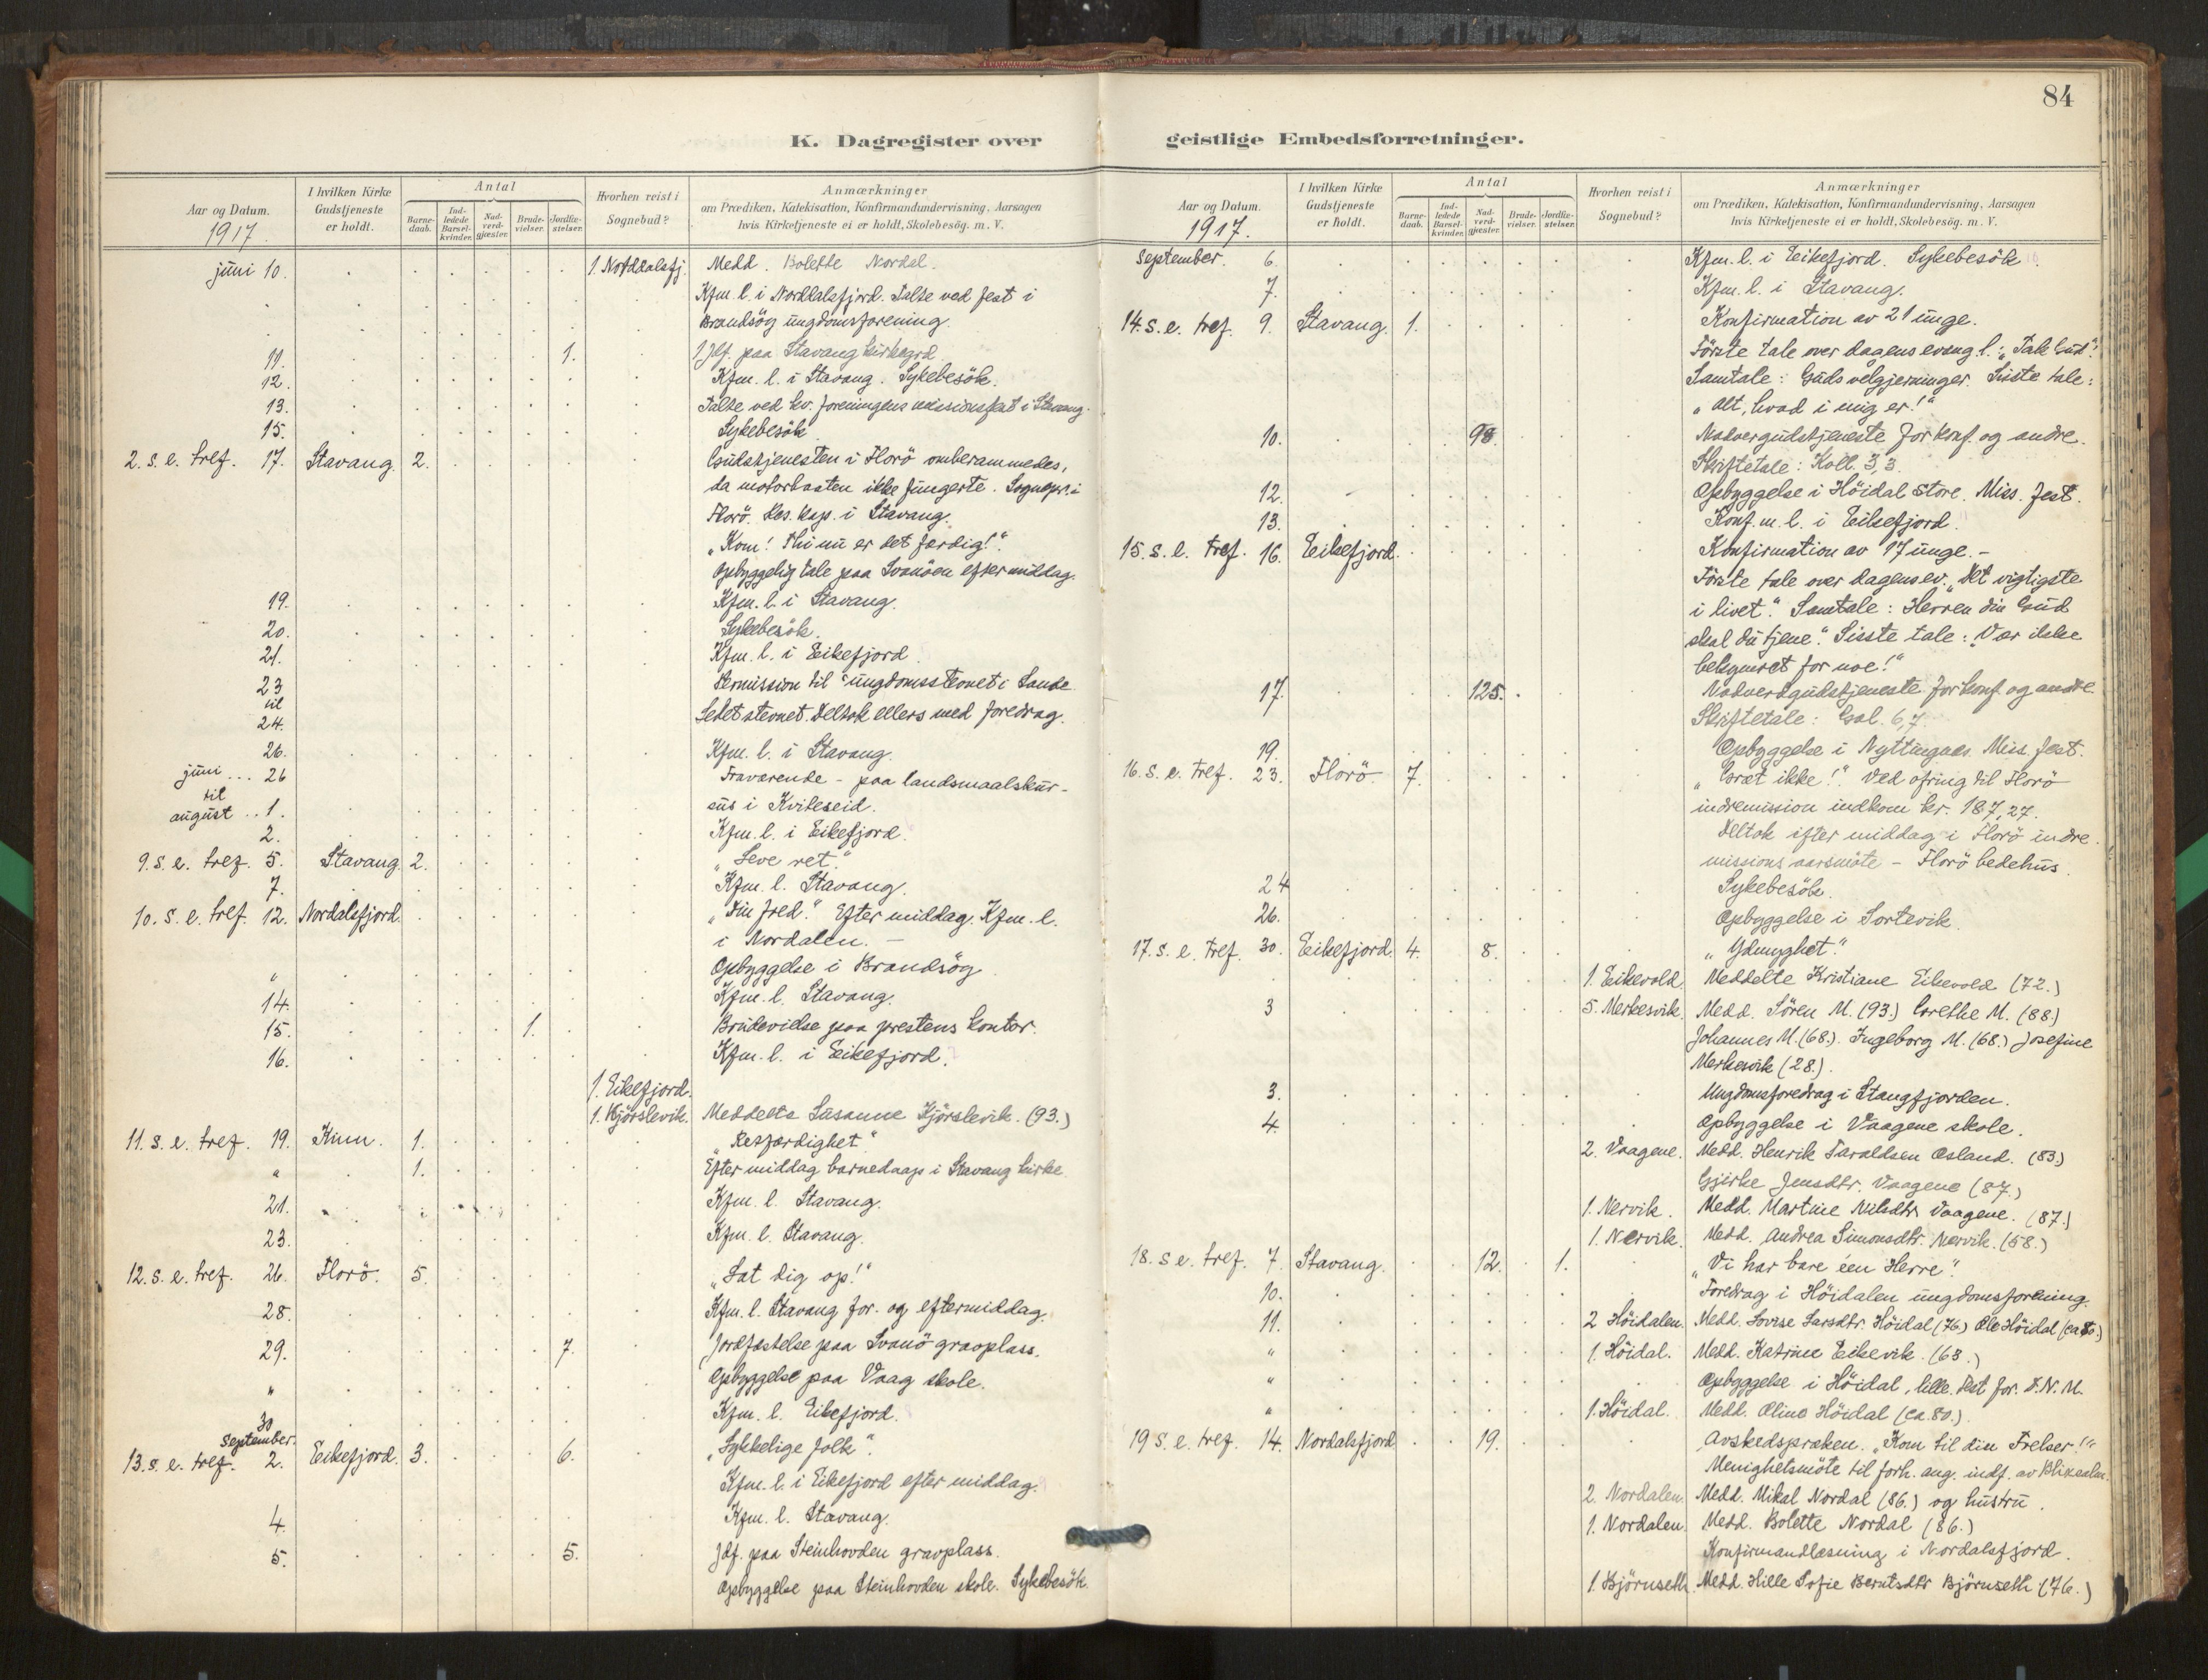 84
K. Dagregister over
Aar og Datum.
1917.
I hvilken Kirke Gudstjeneste er holdt.
Antal
Barne-daab.
Ind-ledede Barsel-kvinder.
Nad-verd-gjæster.
Brude-vielser.
Jordfæ-stelser.
Hvorhen reist i Sognebud?
Anmærkninger
om Prædiken, Katekisation, Konfirmandundervisning, Aarsagen
hvis Kirketjeneste ei er holdt, Skolebesög. m. V.
juni 10. 1 Norddalsfj. Medd. Bolette Nordal.
Kfm. l. i Norddalsfjord. Talte ved fest i
Brandsög ungdomsforening.
11. 1. 1 Jdf. paa Stavang kirkegrd.
12. Kfm. l. i Stavang. Sykebesök.
13. Talte ved kv. foreningens missionsfest i Stavang.
15. Sykebesök
2. s. e. tref. 17. Stavang. 2. Gudstjenesten i Florö omberammedes,
da motorbaaten ikke fungerte. Sognepr. i
Florö. Res. kap. i Stavang.
"Kom! Thi nu er det færdig!".
Opbyggelig tale paa Svanöen eftermiddag.
19. Kfm. l. i Stavang.
20. Sykebesök.
21. Kfm. l. i Eikefjord.
23 Permission til ungdomsstevnet i Sande.
til
24. Ledet stevnet. Deltok ellers med foredrag.
26. Kfm. l. i Stavang.
juni ... 26 Fraværende - paa landsmaalskur-
til
august .. 1. sus i Kviteseid.
2. Kfm. l. i Eikefjord.
9. s. e. tref. 5. Stavang. 2. "Leve ret."
7. Kfm. l. Stavang.
10. s. e. tref. 12. Nordalsfjord. "Din fred." Eftermiddag. Kfm. l.
i Nordalen. -
" Opbyggelse i Brandsög.
14. Kfm. l. Stavang.
15. 1. Brudevielse paa prestens kontor.
16. Kfm. l. i Eikefjord.
1. Eikefjord.
1. Kjörslevik. Meddelte Susanne Kjörslevik. (93.)
11. s. e. tref. 19. Kinn. 1. "Retfærdighet."
" 1. Eftermiddag barnedaap i Stavang kirke.
21. Kfm. l. Stavang.
23. Kfm. l. Stavang.
12. s. e. tref. 26. Florö. 5. "Lat dig op!"
28. Kfm. l. Stavang for. og eftermiddag.
29. 7. Jordfæstelse paa Svanö gravplass.
" Opbyggelse paa Vaag skole.
30 Kfm. l. Eikefjord.
September.
13. s. e. tref. 2. Eikefjord. 3. 6. "Lykkelige folk".
Kfm. l. i Eikefjord eftermiddag.
4. Kfm. l. Stavang.
5. 5. Jdf. paa Steinhovden gravplass.
Opbyggelse paa Steinhovden skole. Sykebesök.
geistlige Embedsforretninger.
Aar og Datum.
1917.
I hvilken Kirke Gudstjeneste er holdt.
Antal
Barne-daab.
Ind-ledede Barsel-kvinder.
Nad-verd-gjæster.
Brude-vielser.
Jordfæ-stelser.
Hvorhen reist i Sognebud?
Anmærkninger
om Prædiken, Katekisation, Konfirmandundervisning, Aarsagen
hvis Kirketjeneste ei er holdt, Skolebesög. m. V.
September. 6. Kfm. l. i Eikefjord. Sykebesök.
7. Kfm. l. i Stavang.
14. s. e. tref. 9. Stavang. 1. Konfirmation av 21 unge.
Förste tale over dagens evang l.: "Tak Gud".
Samtale: Guds velgjerninger. Sisste tale:
"Alt, hvad i mig er!"
10. 98. Nadvergudstjeneste for konf. og andre.
Skriftetale: Koll. 3,3.
12. Opbyggelse i Höidal store. Miss. fest.
13. Konf. m. l. i Eikefjord.
15. s. e. tref. 16. Eikefjord. Konfirmation av 17 unge. -
Förste tale over dagens ev. "Det vigtigste
i livet." Samtale: Herren din Gud
skal du tjene." Sisste tale: "Vær ikke
bekymret for noe!"
17. 125. Nadverdgudstjeneste for konf. og andre.
Skriftetale: Gal. 6,7.
19. Opbyggelse i Nyttingnes. Miss. fest.
16. s. e. tref. 23. Florö. 7. "Græt ikke!" Ved ofring til Florö
indremission indkom kr. 187,27.
Deltok eftermiddag i Florö indre
missions aarsmöte - Florö bedehus.
24 Sykebesök.
26. Opbyggelse i Sortevik.
17. s. e. tref. 30. Eikefjord. 4. 8. "Ydmyghet."
1. Eikevold. Meddelte Kristiane Eikevold (72.)
3 5. Merkesvik. Medd. Sören M. (93.) Grethe M. (88)
Johannes M. (68.). Ingeborg M. (68.) Josefine
Merkesvik (28.).
3. Ungdomsforedrag i Stangfjorden.
4. Opbyggelse i Vaagene skole.
2. Vaagene. Medd. Henrik Taraldsen Osland. (83.)
Gjirke Jensdtr. Vaagene (87.)
1. Nervik. Medd. Martine Nilsdtr Vaagene. (87.)
1. Nervik. Medd. Andrea Simonsdtr. Nervik. (58.)
18. s e. tref. 7. Stavang. 12. 1. "Vi har bare éen Herre".
10. Foredrag i Höidalen ungdomsforening.
11. 2 Höidalen. Medd. Lovise Larsdtr. Höidal (76.) Ole Höidal (ca 80.)
" 1. Höidal. Medd. Katrine Eikevik. (63.)
" Opbyggelse i Höidal, lille. Fest for. D. N. M.
" 1. Höidal. Medd. Oline Höidal (ca. 80.).
19 s. e. tref. 14. Nordalsfjord. 19. Avskedspræken. "Kom til din Frelser!"
Menighetsmöte til forh. ang. indf. av Blixsalm.
2. Nordalen. Medd. Mikal Nordal (86.) og hustru.
1. Nordalen. Medd. Bolette Nordal (86.)
Konfirmandlæsning i Nordalsfjord.
1. Björnseth. Medd. Hille Sofie Berntsdtr Björnseth (76.)